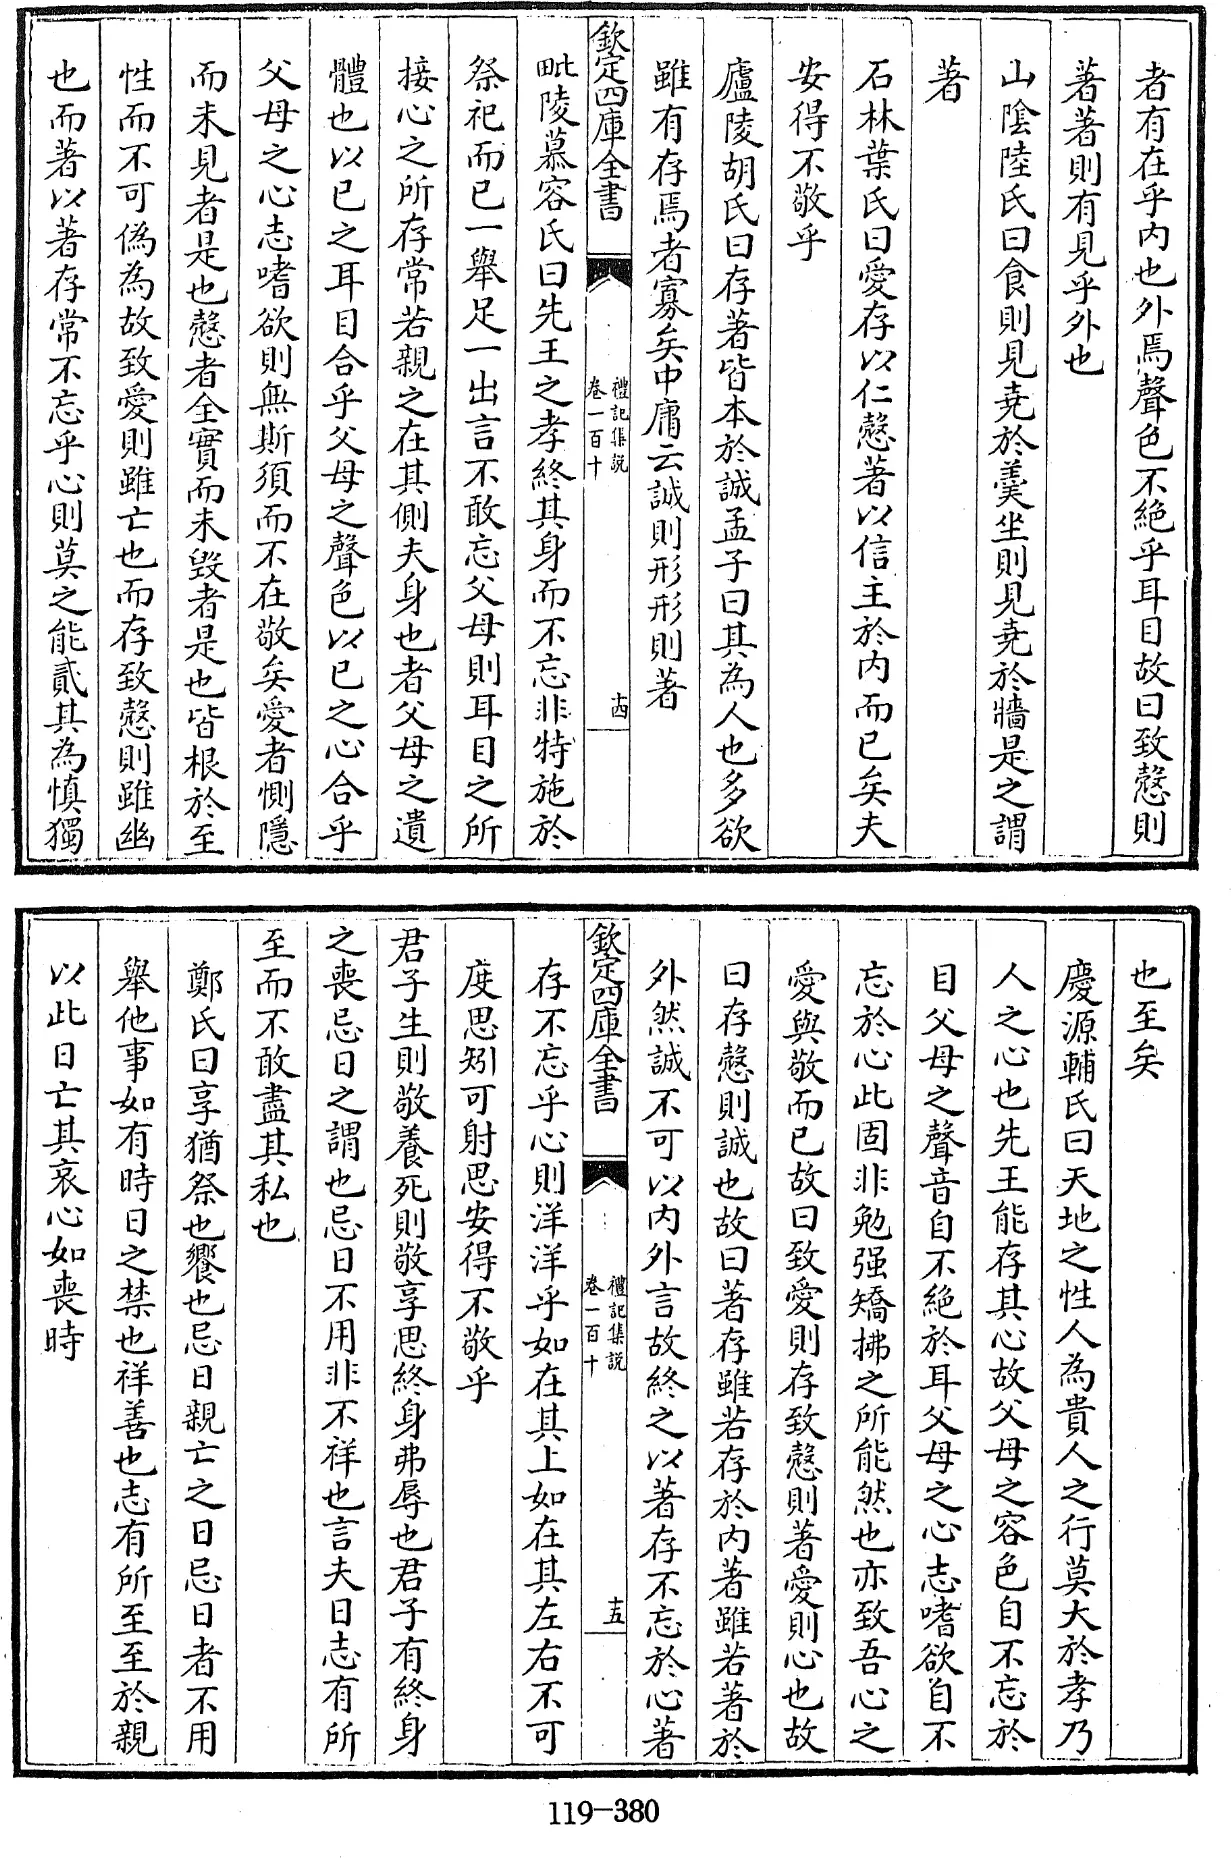 者有在乎内也外焉聲色不絶乎耳目故曰致慤則
著著則有見乎外也
山陰陸氏曰食則見堯於羹坐則見堯於牆是之謂
著
石林葉氏曰愛存以仁慤著以信主於内而已矣夫
安得不敬乎
廬陵胡氏曰存著皆本於誠孟子曰其為人也多欲
雖有存焉者寡矣中庸云誠則形形則著
欽定四庫全書
禮記集説
卷一百十
十四
毗陵慕容氏曰先王之孝終其身而不忘非特施於
祭祀而已一舉足一出言不敢忘父母則耳目之所
接心之所存常若親之在其側夫身也者父母之遺
體也以已之耳目合乎父母之聲色以已之心合乎
父母之心志嗜欲則無斯須而不在敬矣愛者惻隱
而未見者是也慤者全實而未毀者是也皆根於至
性而不可偽為故致愛則雖亡也而存致慤則雖幽
也而著以著存常不忘乎心則莫之能貳其為慎獨
也至矣
慶源輔氏曰天地之性人為貴人之行莫大於孝乃
人之心也先王能存其心故父母之容色自不忘於
目父母之聲音自不絶於耳父母之心志嗜欲自不
忘於心此固非勉强矯拂之所能然也亦致吾心之
愛與敬而已故曰致愛則存致慤則著愛則心也故
曰存慤則誠也故曰著存雖若存於内著雖若著於
外然誠不可以内外言故終之以著存不忘於心著
欽定四庫全書
禮記集説
卷一百十
十五
存不忘乎心則洋洋乎如在其上如在其左右不可
度思矧可射思安得不敬乎
君子生則敬養死則敬享思終身弗辱也君子有終身
之喪忌日之謂也忌日不用非不祥也言夫日志有所
至而不敢盡其私也
鄭氏曰享猶祭也饗也忌日親亡之日忌日者不用
舉他事如有時日之禁也祥善也志有所至至於親
以此日亡其哀心如喪時
119-380